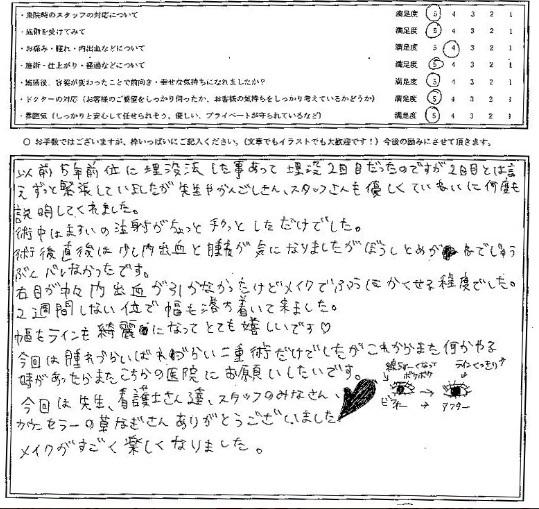 ・来院時のスタッフの対応について 満足度 5 4 3 2 1
・施術を受けてみて 満足度 5 4 3 2 1
・お痛み・腫れ・内出血などについて 満足度 5 4 3 2 1
・施術・仕上がり・経過などについて 満足度 5 4 3 2 1
・施術後、容姿が変わったことで前向き・幸せな気持ちになれましたか？ 満足度 5 4 3 2 1
・ドクターの対応（お客様のご要望をしっかり伺ったか、お客様の気持ちをしっかり考えているかどうか） 満足度 5 4 3 2 1
・雰囲気（しっかりと安心して任せられそう、優しい、プライベートが守られているなど） 満足度 5 4 3 2 1
○ お手数ではございますが、枠いっぱいにご記入ください。（文章でもイラストでも大歓迎です！）今後の励みにさせて頂きます。
以前5年前位に埋没法した事あって埋没2回目だったのですが2回目とは言
えずっと緊張していましたが先生やかんごしさん、スタッフさんも優しくていねいに何度も
説明してくれました。
術中はますいの注射がちょっとチクっとしただけでした。
術後直後は少し内出血と腫れが気になりましたがぼうしとめがねでじゅう
ぶんバレなかったです。
右目が中々内出血が引かなかったけどメイクでふつうにかくせる程度でした。
2週間しない位で幅も落ち着いて来ました。
幅もラインも綺麗になってとても嬉しいです♡
今回は腫れづらいばれづらい二重術だけでしたがこれからまた何かやる
事があったらまたこちらの医院にお願いしたいです。
今回は先生、看護士さん達、スタッフのみなさん、
カウンセラーの草なぎさんありがとうございました
メイクがすごく楽しくなりました。
ラインくっきり
ビフォー → アフター